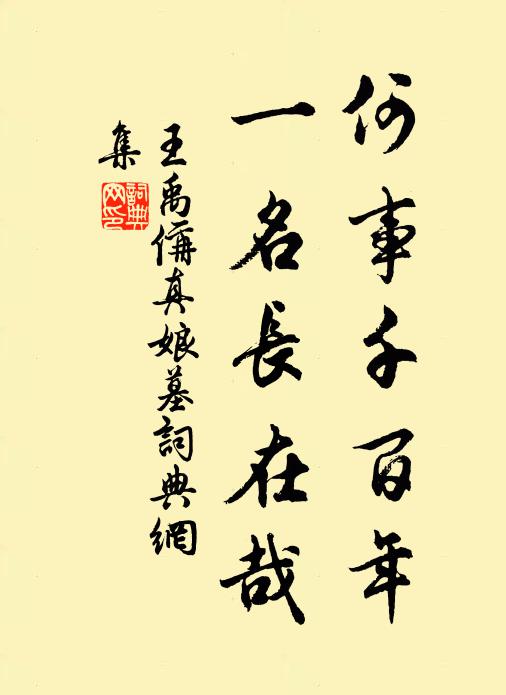 何事千百年
一名長在哉
王禹偁真娘墓詞典網
集
詞典
网印